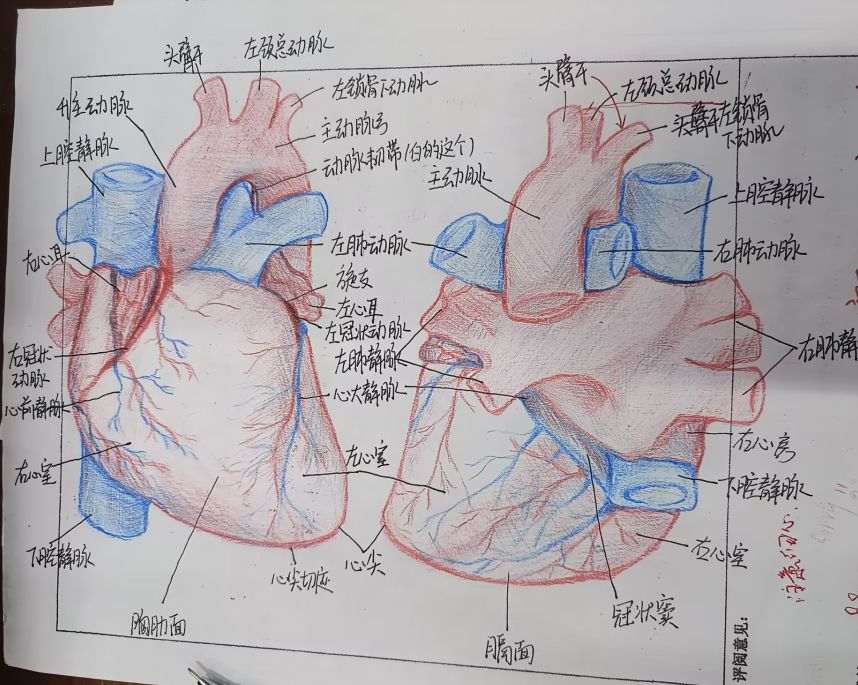 头臂干
左颈总动脉
升主动脉
左锁骨下动脉
主动脉弓
上腔静脉
动脉韧带(白的这个)
左肺动脉
右心耳
旋支
左心耳
左冠状动脉
右冠状
动脉
左肺静脉
心前静脉
心大静脉
右心室
左心室
下腔静脉
心尖切迹
心尖
胸肋面
头臂干
左颈总动脉
头臂干左锁骨
下动脉
主动脉
上腔静脉
右肺动脉
右肺静
右心房
下腔静脉
右心室
冠状窦
膈面
评阅意见: